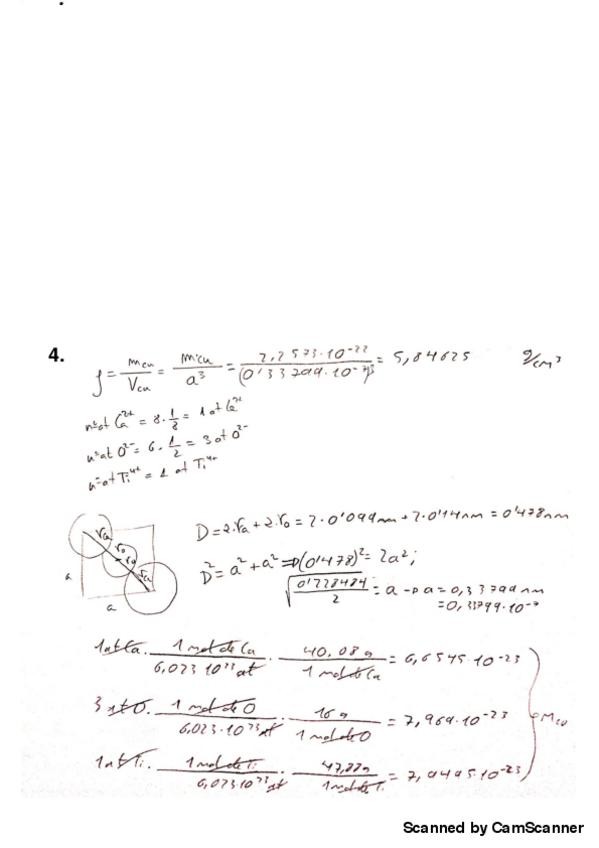 4.
ρ = m_cu / V_cu = m_cu / a³ = 2,2573·10⁻²² / (0'33799·10⁻⁷)³ = 5,84625 g/cm³
nºat Ca²⁺ = 8 · 1/8 = 1 at Ca²⁺
nºat O²⁻ = 6 · 1/2 = 3 at O²⁻
nºat Ti⁴⁺ = 1 at Ti⁴⁺
D = 2·r_Ca + 2·r_o = 2·0'099nm + 2·0'14nm = 0'478nm
D² = a² + a² ⇒ (0'478)² = 2a²;
√(0'228484 / 2) = a → a = 0,33799 nm
= 0,33799·10⁻⁷
r_Ca
r_o
r_o
r_Ca
a
a
1at Ca · 1 mol de Ca / 6,023·10²³ at · 40,08 g / 1 mol de Ca = 6,6545·10⁻²³
3 at O · 1 mol de O / 6,023·10²³ at · 16 g / 1 mol de O = 7,969·10⁻²³
m_cu
1at Ti · 1 mol de Ti / 6,023·10²³ at · 47,88g / 1 mol de Ti = 7,9495·10⁻²³
Scanned by CamScanner